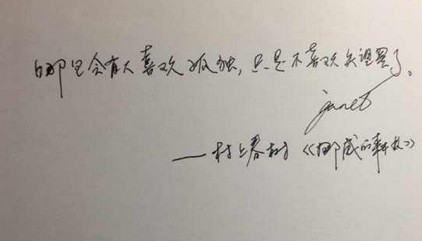 哪里会有人喜欢孤独，只是不喜欢失望罢了。
janet
——村上春树《挪威的森林》